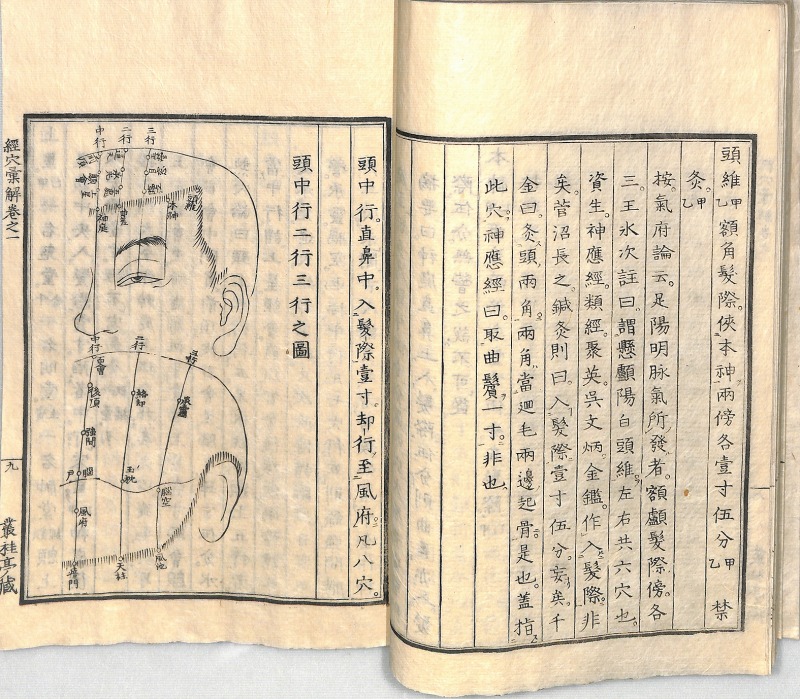 頭維甲乙額角髮際俠本神兩傍各壹寸伍分甲乙禁
灸甲乙
按氣府論云足陽明脉氣所發者額顱髮際傍各
三王氷次註曰謂懸顱陽白頭維左右共六穴也
資生神應經類經聚英吳文炳金鑑作入髮際非
矣菅沼長之鍼灸則曰入髮際壹寸伍分妄矣千
金曰灸頭兩角兩角當迴毛兩邊起骨是也蓋指
此穴神應經曰取曲鬢一寸非也
頭中行直鼻中入髮際壹寸却行至風府凡八穴
頭中行二行三行之圖
三行
二行
中行
頭維
本神
神庭
上星
顖會
中行
二行
三行
百會
後頂
強間
腦戶
風府
瘂門
絡却
玉枕
天柱
承靈
腦空
風池
經穴彙解卷之一
九
叢桂亭藏